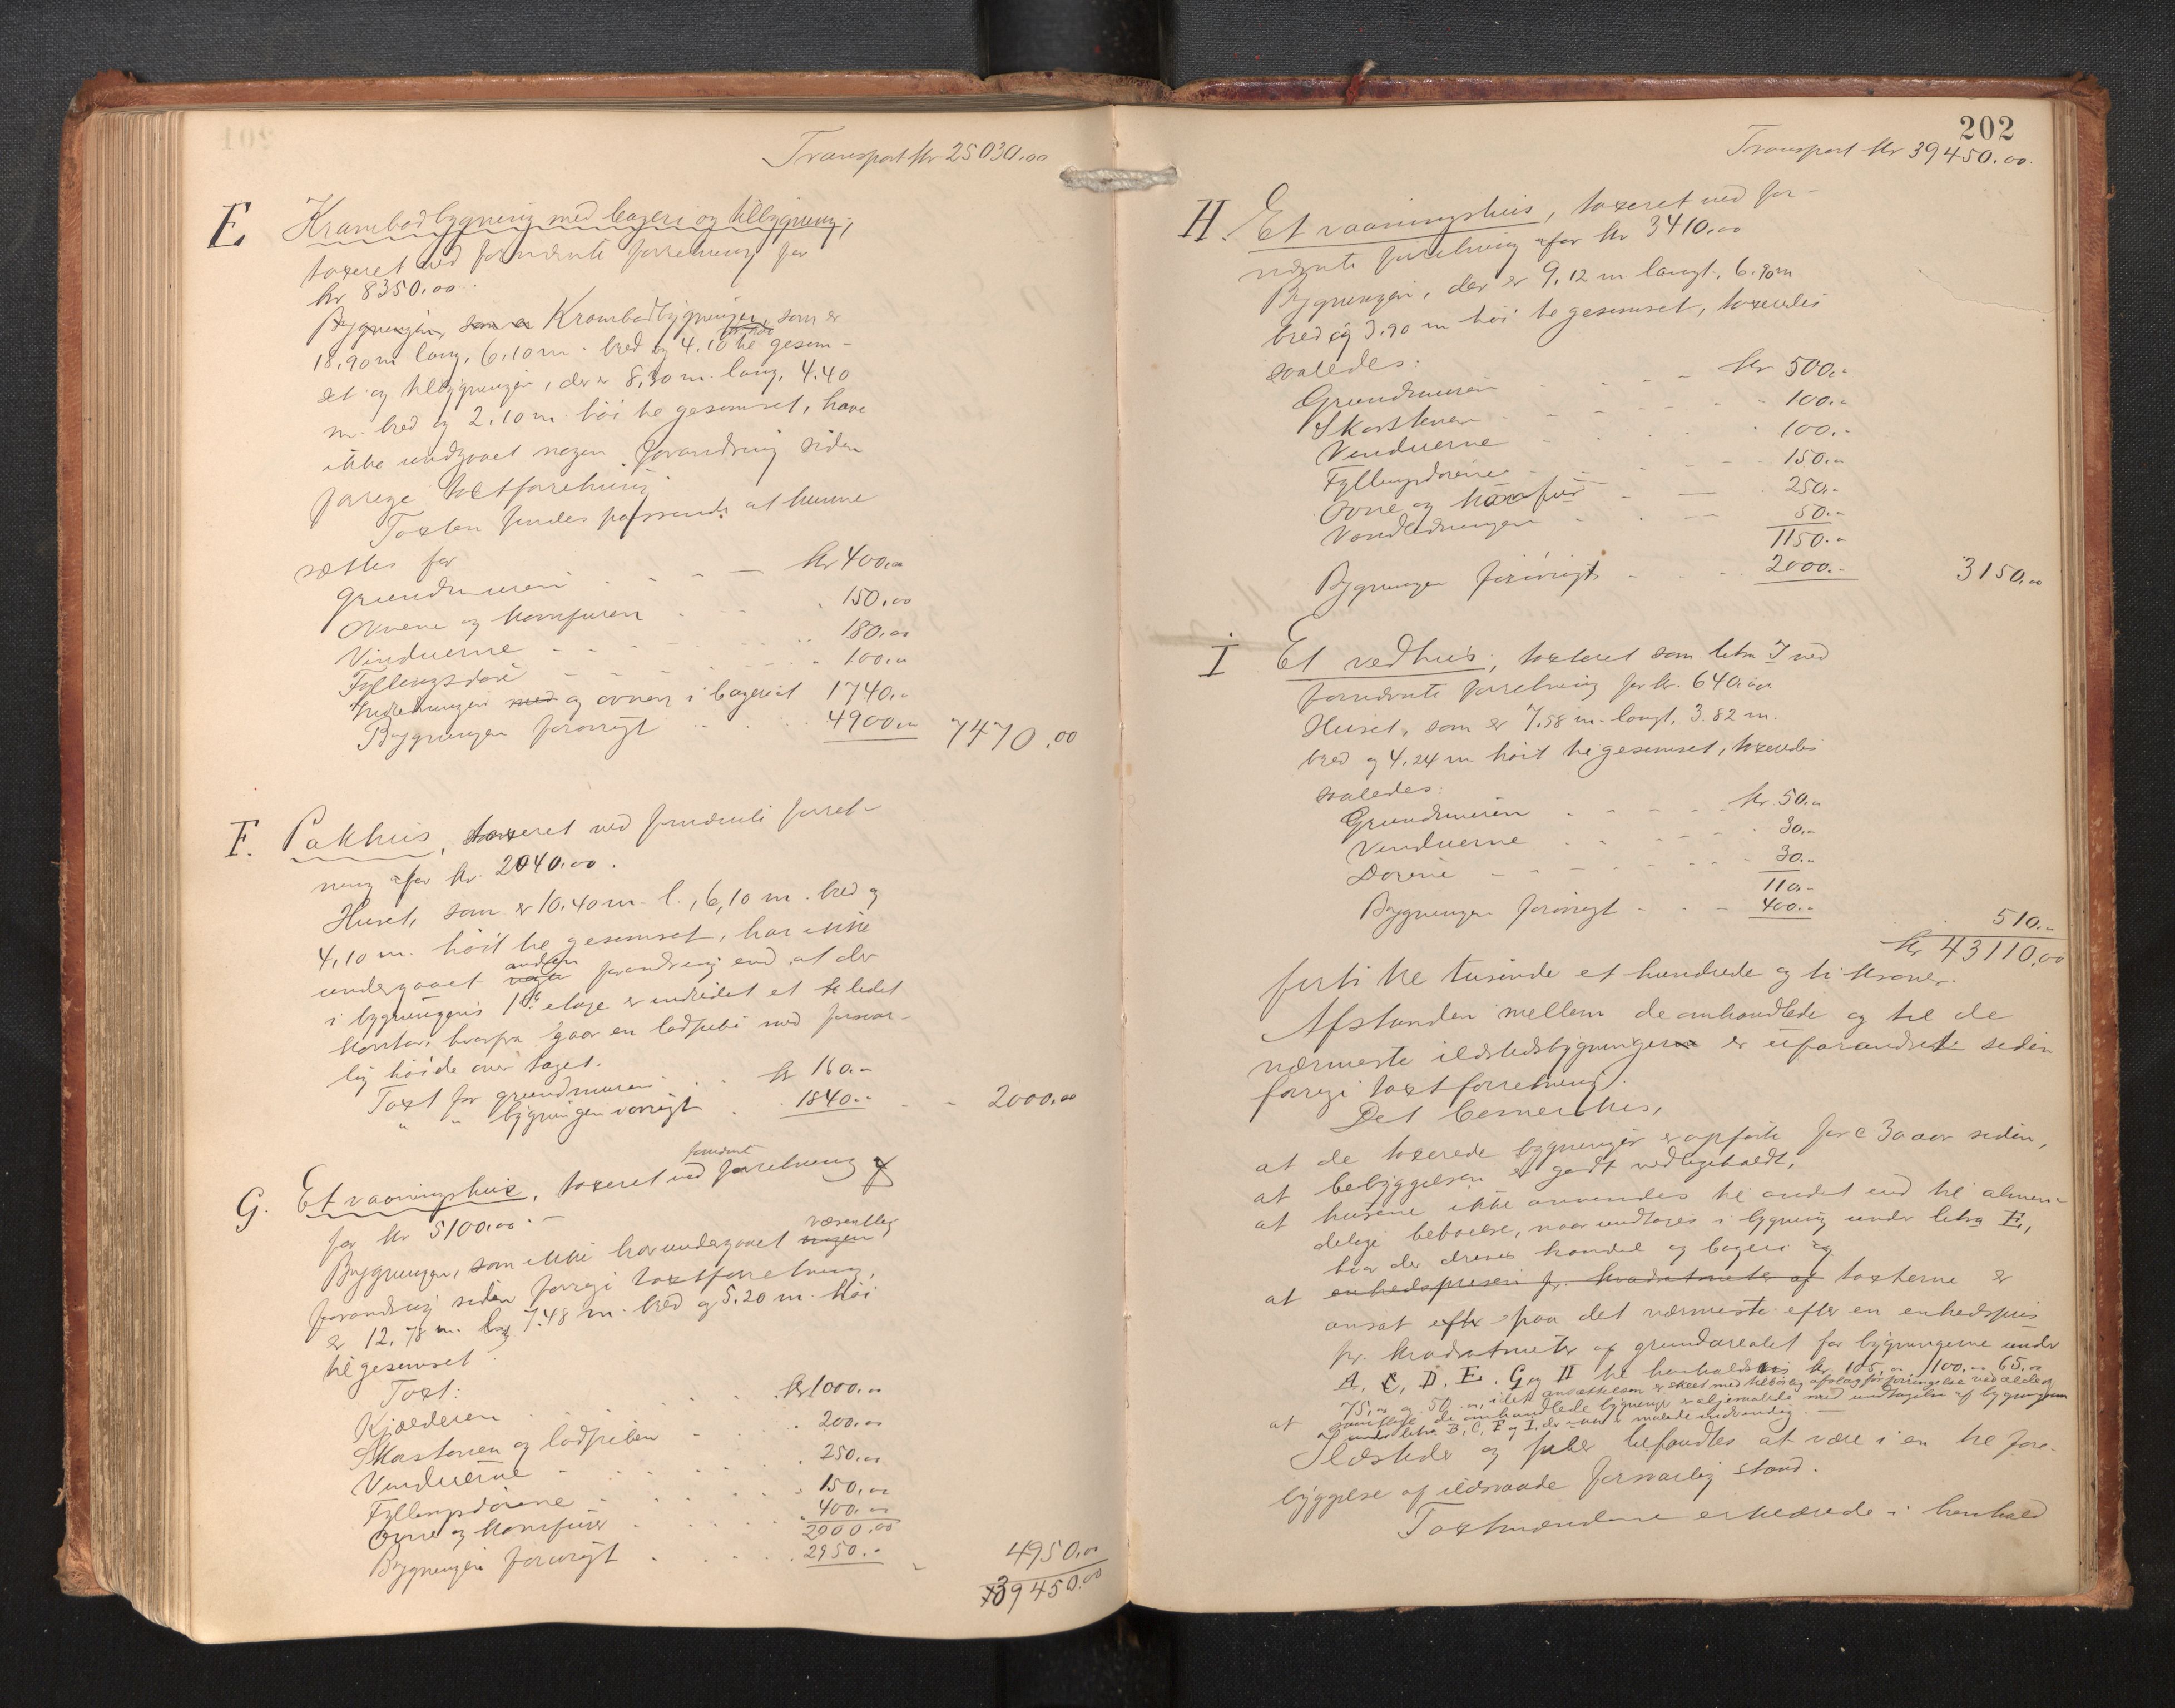 Transport kr 25030.00
E Krambodbygning med bageri og tilbygning,
taxeret ved fornævnte forretning for
kr 8350.00.
Bygningen, som er Krambodbygningen, som er
18.90 m lang, 6.10 m. bred og 4.10 til gesem-
set og tilbygningen, der er 8,30 m. lang, 4.40
m. bred og 2.10 m. høi til gesemset, have
ikke undgaaet nogen forandring siden
forrige taxtforretning.
Taxten findes passende at kunne
sættes for
Grundmuren kr 400.00
Ovnene og komfuren 150.00
Vinduerne 180.00
Fyllingsdøre 100.00
Indredningen med og ovnen i bageriet 1740.00
Bygningen forøvrigt 4900.00 7470.00
F. Pakhus, taxeret ved fornævnte forret-
ning for kr. 2040.00.
Huset, som er 10.40 m. l., 6,10 m. bred og
4,10 m. høit til gesemset, har ikke
anden
undergaaet nogen forandring end at der
i bygningens 1ste etage er indredet et lidet
kontor, hvorfra gaar en ladpibe med forsvar-
lig høide over taget.
Taxt for grundmuren kr 160.00
" " bygningen øvrigt 1840.00 2000.00
fornævnte
G. Et vaaningshus, taxeret ved forretning
for kr 5100.00.
væsentlig
Bygningen, som ikke har undergaaet nogen
forandring siden forrige taxtforretning,
er 12.78 m. lang 7.48 m. bred og 5.20 m. høi
til gesemset.
Taxt:
Kjælderen kr 1000.00
Skorstenen og ladpiben 200.00
Vinduerne 250.00
Fyllingsdørene 150.00
Ovne og komfurer 400.00
2000.00
Bygningen forøvrigt 2950.00 4950.00
39450.00
202
Transport kr 39450.00.
H. Et vaaningshus, taxeret ved for-
nævnte forretning for kr 3410.00
Bygningen, der er 9,12 m langt, 6.90 m
bred og 3.90 m høi til gesemset, taxeredes
saaledes:
Grundmuren kr 500.00
Skorstenen 100.00
Vinduerne 100.00
Fyllingsdørene 150.00
Ovne og komfur 250.00
Vandledningen 50.00
1150.00
Bygningen forøvrigt 2000.00 3150.00
I Et vedhus, taxteret som litra I ved
fornævnte forretning for kr. 640.00
Huset, som er 7.58 m. langt, 3.82 m.
bred og 4,24 m høit til gesemset, taxeredes
saaledes:
Grundmuren kr. 50.00
Vinduerne 30.00
Dørene 30.00
110.00
Bygningen forøvrigt 400.00 510.00
kr 43110.00
firti tre tusinde et hundrede og ti kroner.
Afstanden mellem de omhandlede og til de
nærmeste ildstedsbygninger er uforandret siden
forrige taxtforretning.
Det bemerkes,
at de taxerede bygninger er opførte for c 30 aar siden,
at bebyggelsen er godt vedligeholdt,
at husene ikke anvendes til andet end til almin-
delig beboelse, naar undtages i bygning under litra E,
hvor der drives handel og bageri og
at enhedsprisen pr. kvadratmeter af taxterne er
ansat efter paa det nærmeste efter en enhedspris
pr. kvadratmeter af grundarealet for bygningerne under
A, C, D, E, G og H til henholdsvis kr. 105,00 100.00 65.00
75,00 og 50.00, idet ansættelsen er skeet med tilbørlig afslag for forringelse ved ælde og
at samtlige de omhandlede bygninger er oljemalede med undtagelse af bygningerne
under litra B, C, F og I, der er malede indvendig.
Ildsteder og piber befandtes at være i en til fore-
byggelse af ildsvaade forsvarlig stand.
Taxtmændene erklærede i henhold